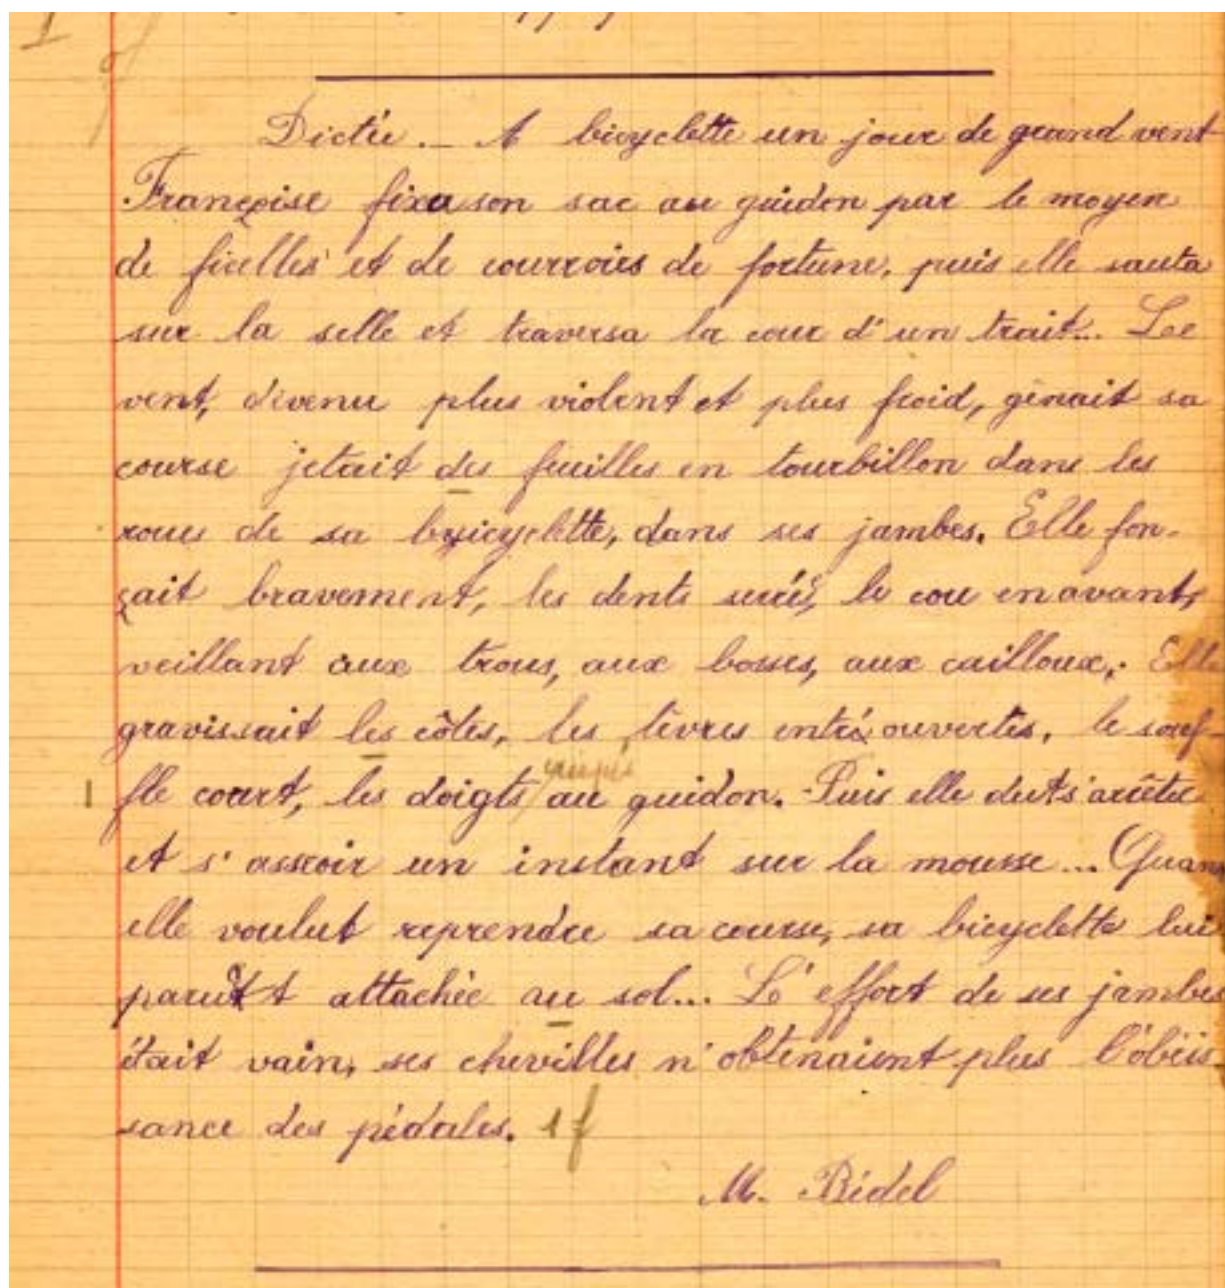 Dictée. _ A bicyclette un jour de grand vent
Françoise fixa son sac au guidon par le moyen
de ficelles et de courroies de fortune, puis elle sauta
sur la selle et traversa la cour d'un trait... Le
vent, devenu plus violent et plus froid, gênait sa
course jetait des feuilles en tourbillon dans les
roues de sa bicyclette, dans ses jambes. Elle fon-
çait bravement, les dents serrés, le cou en avant,
veillant aux trous, aux bosses, aux cailloux,. Elle
gravissait les côtes, les lèvres entré ouvertes, le souf-
1 fle court, les doigts au guidon. Puis elle dut s'arrêter
et s'asseoir un instant sur la mousse... Quan
elle voulut reprendre sa course, sa bicyclette lui
parut attachée au sol... L'effort de ses jambes
était vain, ses chevilles n'obtenaient plus l'obéis-
sance des pédales. 1 f
M. Bidel